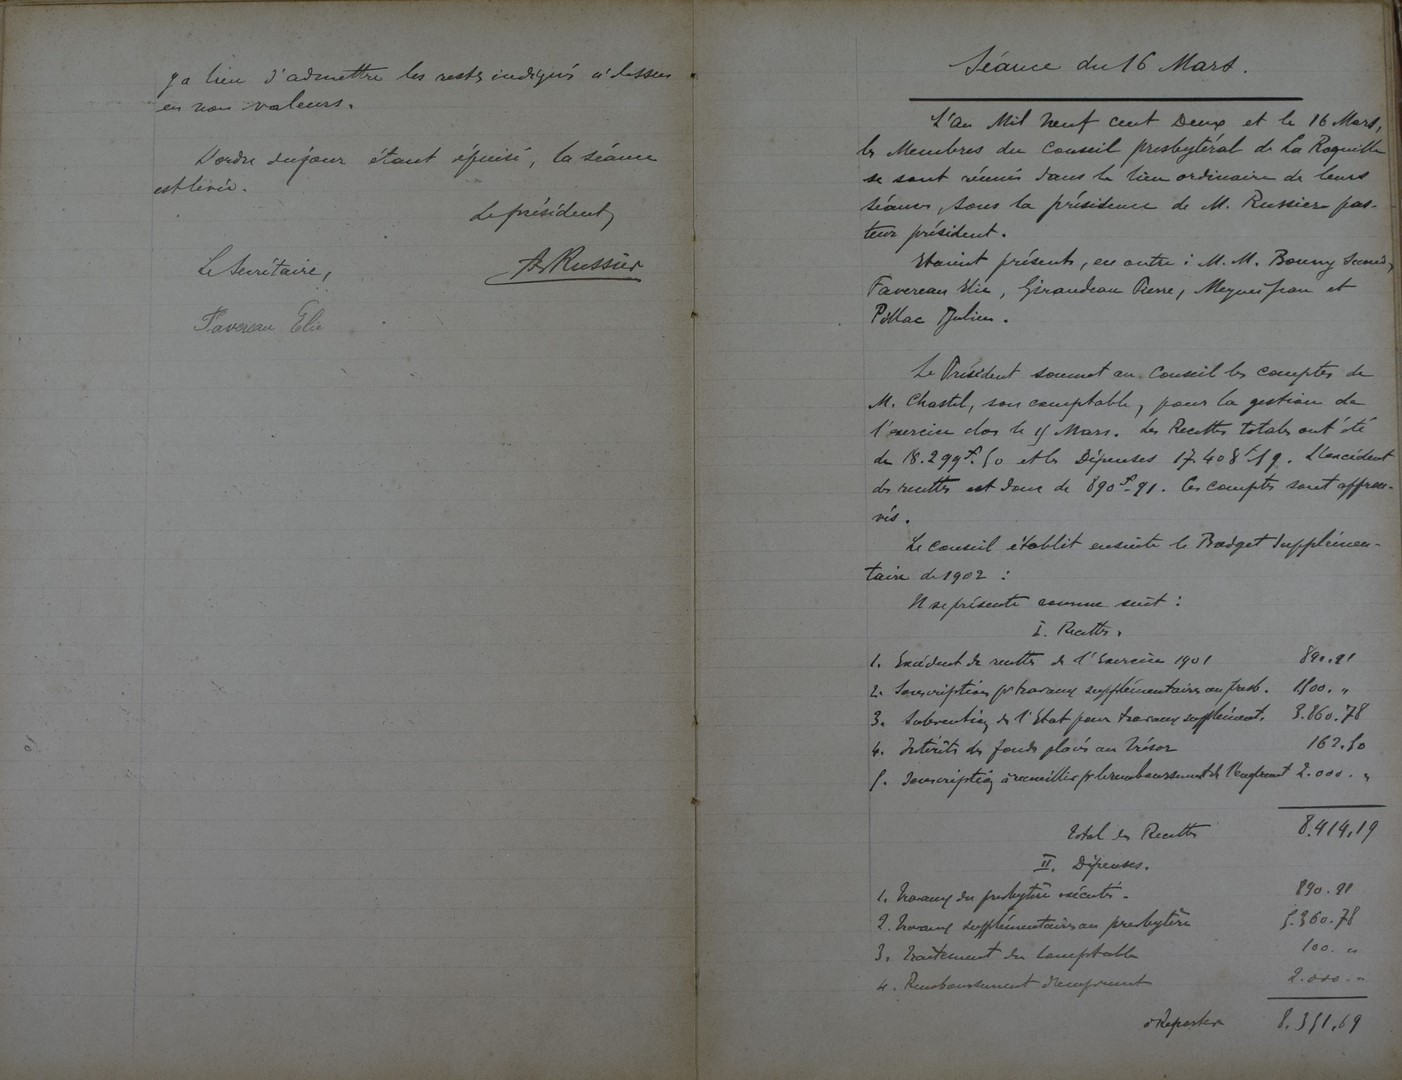 y a lieu d'admettre les restes indiqués ci-dessus
en non valeurs.
L'ordre du jour étant épuisé, la séance
est levée.
Le président,
Le Secrétaire,
A. Russier
Favereau Elie
Séance du 16 Mars.
L'an Mil neuf cent Deux et le 16 Mars,
les Membres du Conseil presbytéral de La Roquille
se sont réunis dans le lieu ordinaire de leurs
séances, sous la présidence de M. Russier pas-
teur président.
Etaient présents, en outre : M. M. Bonny
Favereau Elie, Girandeau Pierre, Jean et
Pillac Julien.
Le Président soumet au Conseil les comptes de
M. Chastel, son comptable, pour la gestion de
l'exercice clos le 15 Mars. Les Recettes totales ont été
de 18.299f.50 et les Dépenses 17.408f.59. L'excédent
des recettes est donc de 890f.91. Ces comptes sont approu-
vés.
Le conseil établit ensuite le Budget supplémen-
taire de 1902 :
Il se présente comme suit :
I. Recettes.
1. Excédent de recettes de l'Exercice 1901 890.91
2. Souscriptions pr travaux supplémentaires au presb. 1500. "
3. Subvention de l'Etat pour travaux supplément. 3.860.78
4. Intérêts des fonds placés au Trésor 162.50
5. Souscription à recueillir pr le remboursement de l'emprunt 2.000. "
Total des Recettes 8.414,19
II. Dépenses.
1. Travaux du presbytère exécutés. 890.91
2. Travaux supplémentaires au presbytère 5.360.78
3. Traitement du Comptable 100. "
4. Remboursement d'emprunt 2.000. "
à Reporter 8.351,69